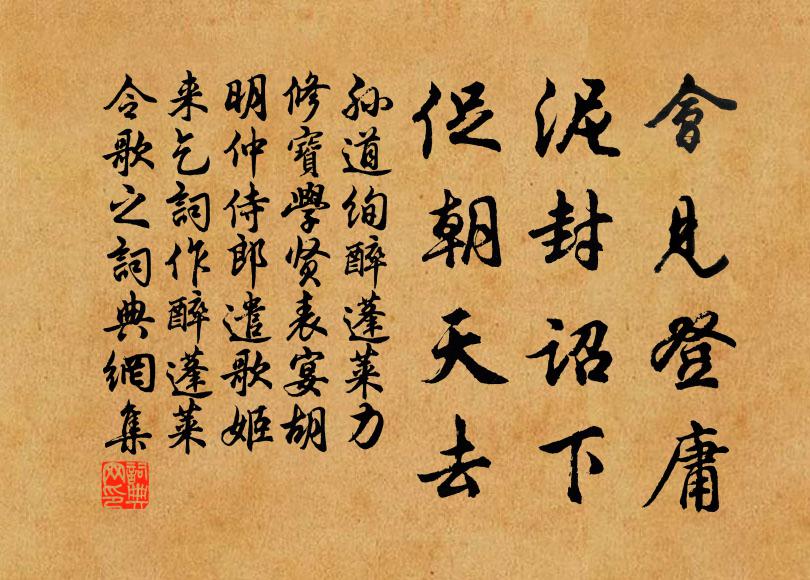 會見登庸
泥封诏下
促朝天去
孙道绚醉蓬莱力
修寶學贤表宴胡
明仲侍郎遣歌姬
来乞詞作醉蓬莱
令歌之詞典網集
詞典網印